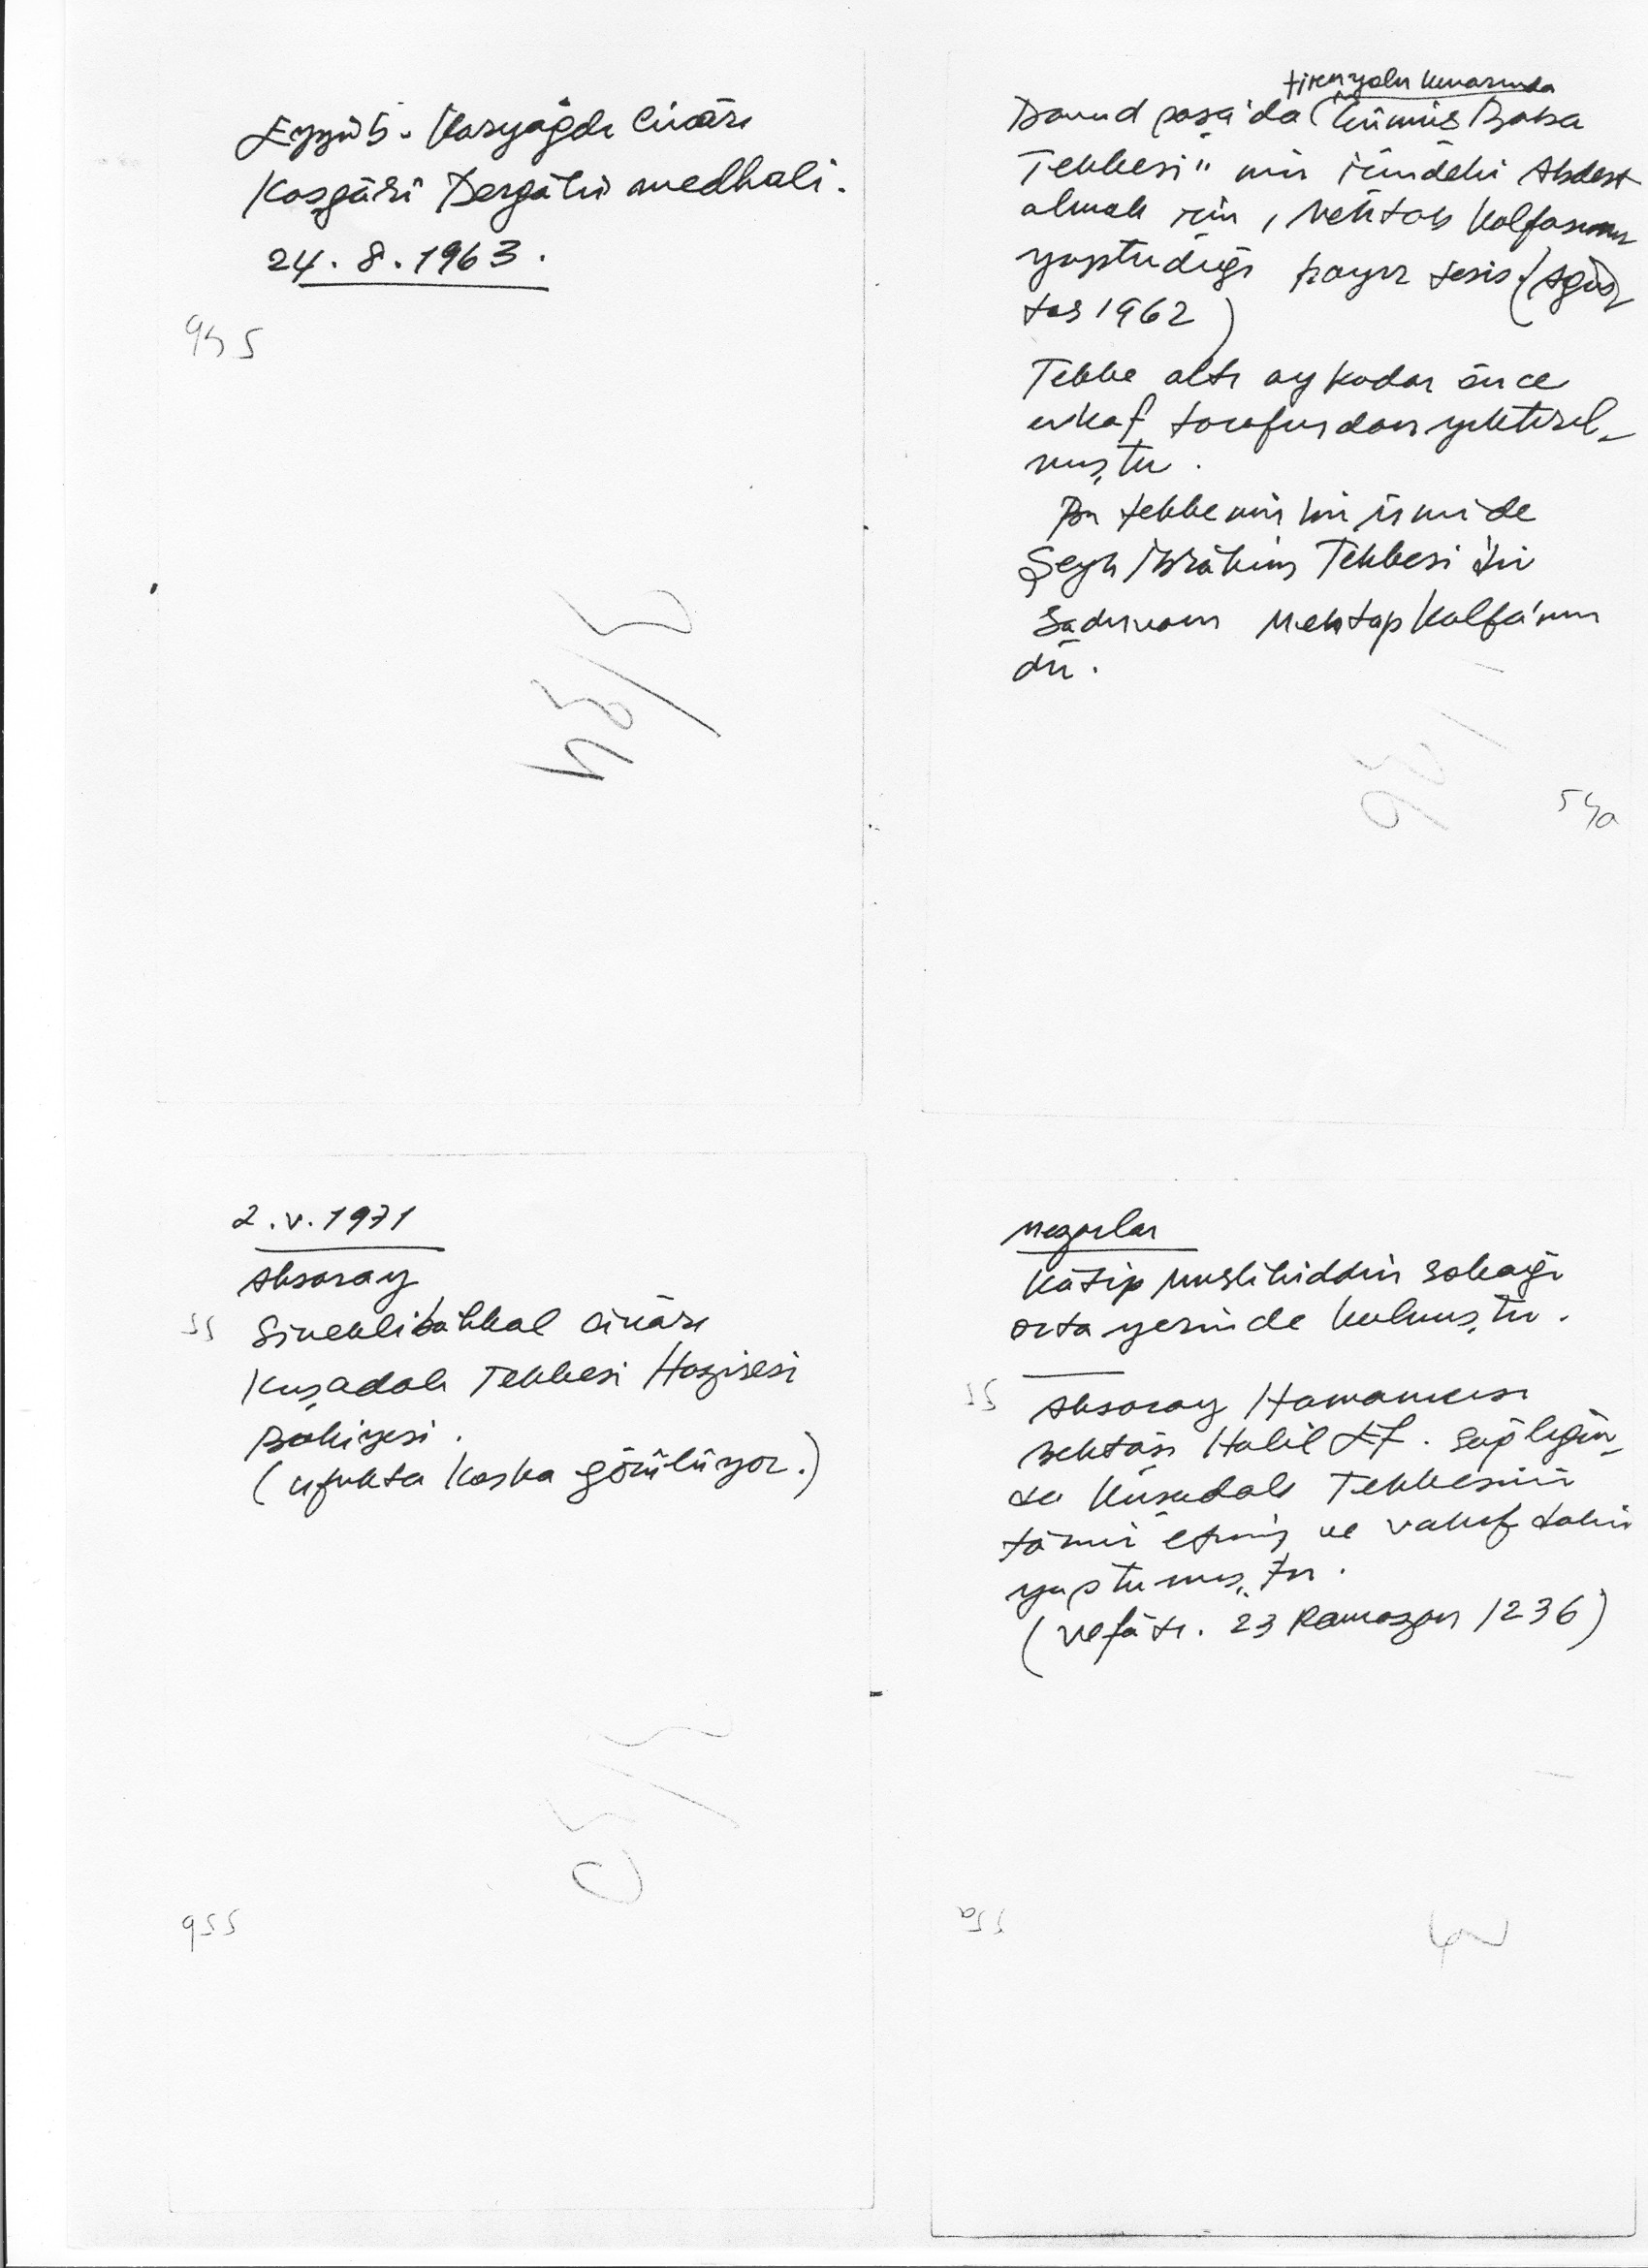 Eyyüb. Karyağdı Civârı
Kaşgârî Dergâhı medhali.
24.8.1963.
tirenyolu kenarında
Davud paşa'da "Gümüş Baba
Tekkesi" nin içindeki Abdest
almak için, Mehtab Kalfasının
yaptırdığı hayır tesis. (Ağus
tos 1962)
Tekke altı ay kadar önce
evkaf tarafından yıktırıl-
mıştır.
Bu tekkenin bir ismi de
Şeyh İbrâhim Tekkesi dir
Şadırvan Mehtap Kalfa'nın
dır.
54a
2.V.1971
Aksaray
55 Sineklibakkal civârı
Kuşadalı Tekkesi Hazîresi
Bâkiyesi.
(ufukta Koska görülüyor.)
55b
Mezarlar
Kâtip Muslihiddin Sokağı
orta yerinde kalmıştır.
55 Aksaray Hamamcısı
Bektâşı Halil Ef. Sağlığın-
da Kuşadalı Tekkesini
tâmir etmiş ve vakıf dahi
yaptırmıştır.
(Vefâtı. 23 Ramazan 1236)
55a